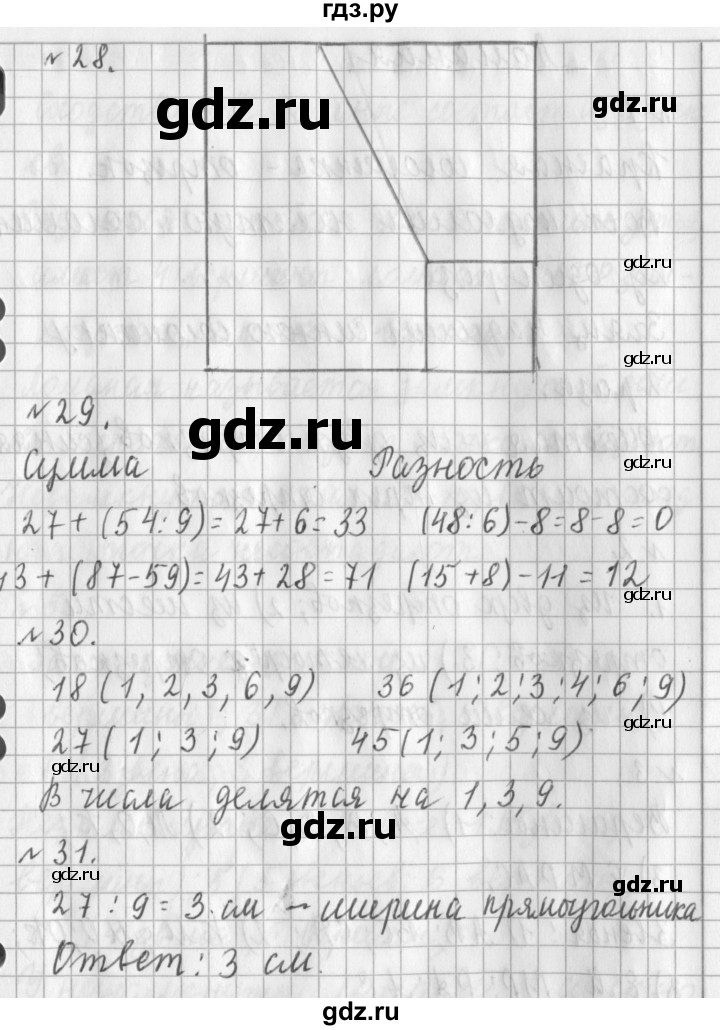 гдз.ру
№28.
gdz.ru
gdz.ru
gdz.ru
gdz.ru
№29.
gdz.ru
Сумма Разность
gdz.ru
27+(54:9)=27+6=33 (48:6)-8=8-8=0
43+(87-59)=43+28=71 (15+8)-11=12
gdz.ru
№30.
18(1, 2, 3, 6, 9) 36(1;2;3;4;6;9)
gdz.ru
27(1; 3; 9) 45(1; 3; 5; 9)
gdz.ru
В числа делятся на 1, 3, 9.
gdz.ru
№31.
gdz.ru
gdz.ru
27:9=3 см – ширина прямоугольника
Ответ: 3 см.
gdz.ru
gdz.ru